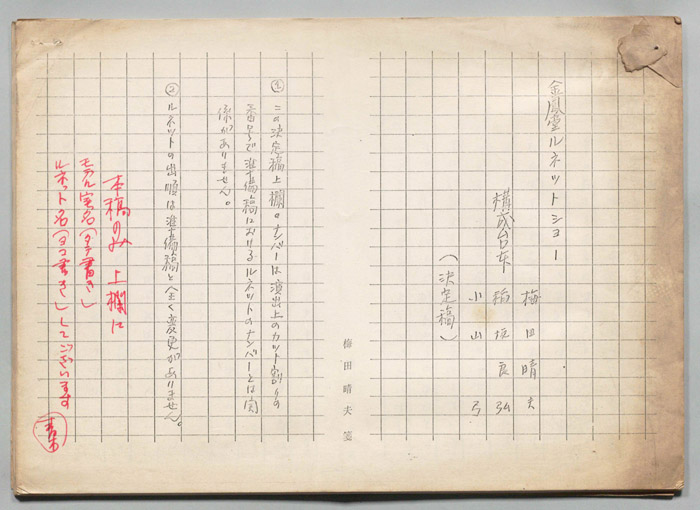 金鳳堂ルネットショー
構成台本
梅田晴夫
稲垣良弘
小山弓
(決定稿)
梅田晴夫箋
① この決定稿上欄のナンバーは演出上のカット割りの
番号で準備稿におけるルネットのナンバーとは関
係がありません。
② ルネットの出順は準備稿と全く変更がありません。
本稿のみ上欄に
モデル実名(タテ書き)
ルネット名(ヨコ書き)してございます